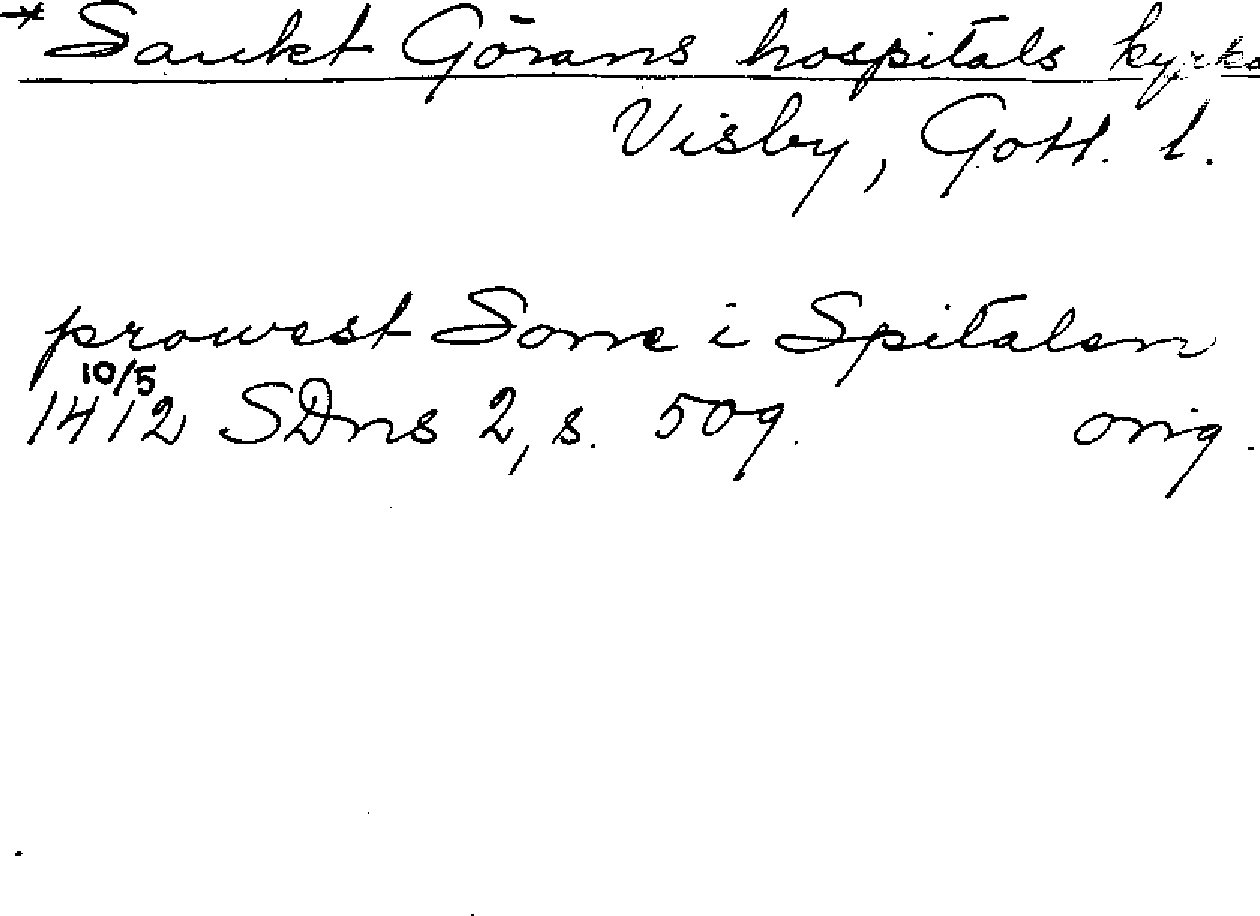 * Sankt Görans hospitals kyrka
Visby, Gotl. l.
prowest Sone i Spitalen
10/5
1412 SDns 2, s. 509. orig.